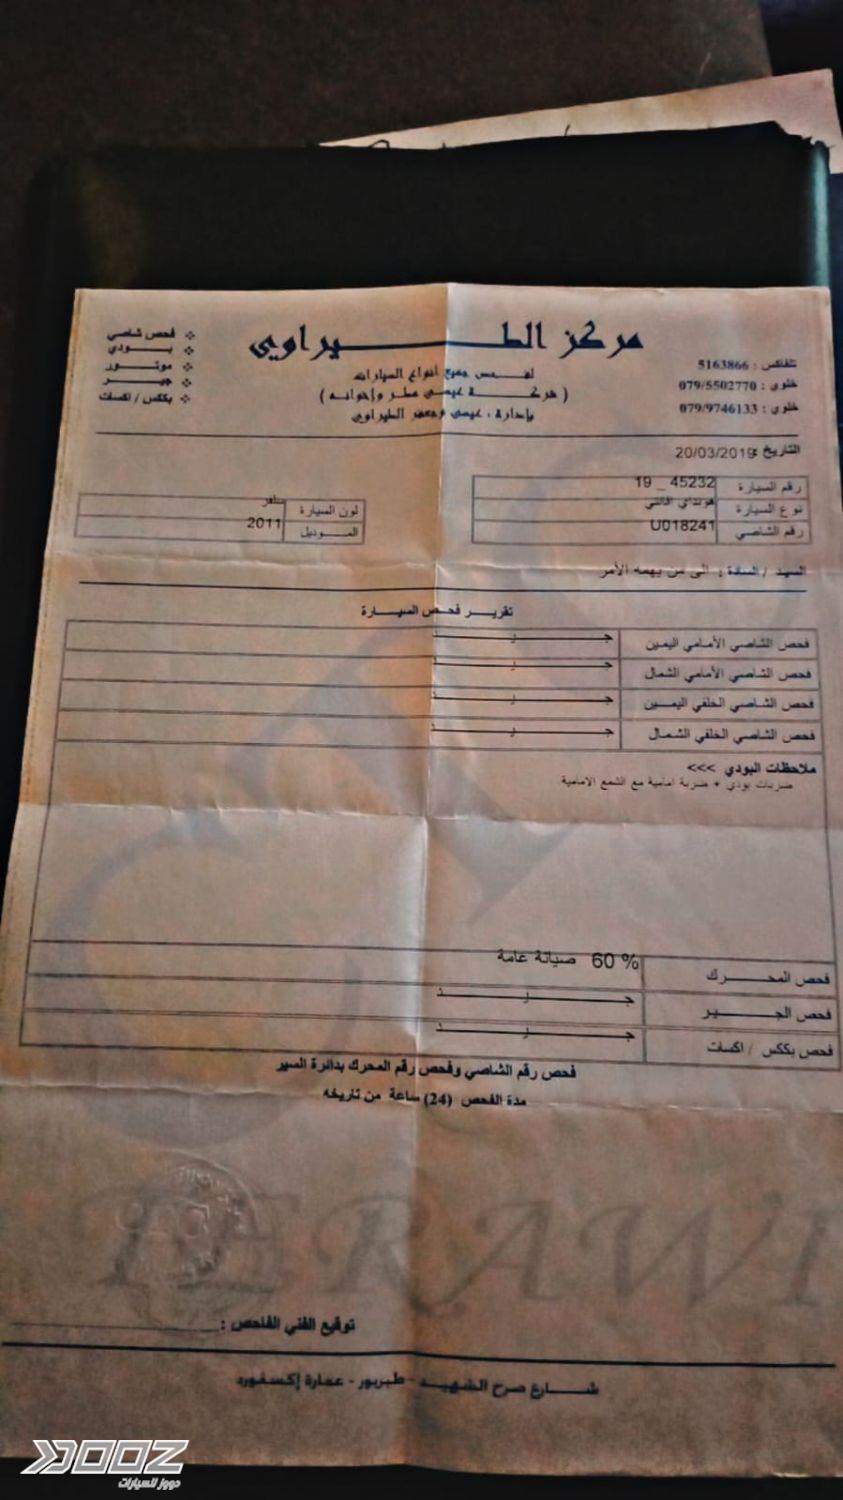 مركز الطيراوي
لفحص جميع انواع السيارات
( شركة عيسى مطر وإخوانه )
بإدارة : عيسى وجعفر الطيراوي
تلفاكس : 5163866
خلوي : 079/5502770
خلوي : 079/9746133
❖ فحص شاصي
❖ بودي
❖ موتور
❖ جير
❖ بككس / اكسات
التاريخ : 20/03/2019
رقم السيارة 45232 _ 19
نوع السيارة هونداي افانتي
رقم الشاصي U018241
لون السيارة
الموديل 2011
السيد / السادة : الى من يهمه الأمر
تقرير فحص السيارة
فحص الشاصي الأمامي اليمين جيد
فحص الشاصي الأمامي الشمال جيد
فحص الشاصي الخلفي اليمين جيد
فحص الشاصي الخلفي الشمال جيد
ملاحظات البودي >>>
ضربات بودي + ضربة امامية مع الشمع الامامية
فحص المحرك 60 % صيانة عامة
فحص الجير جيد
فحص بككس / اكسات جيد
فحص رقم الشاصي وفحص رقم المحرك بدائرة السير
مدة الفحص (24) ساعة من تاريخه
TERAWI
توقيع الفني الفاحص :
شارع صرح الشهيد - طبربور - عمارة إكسفورد
DOOZ
دووز للسيارات